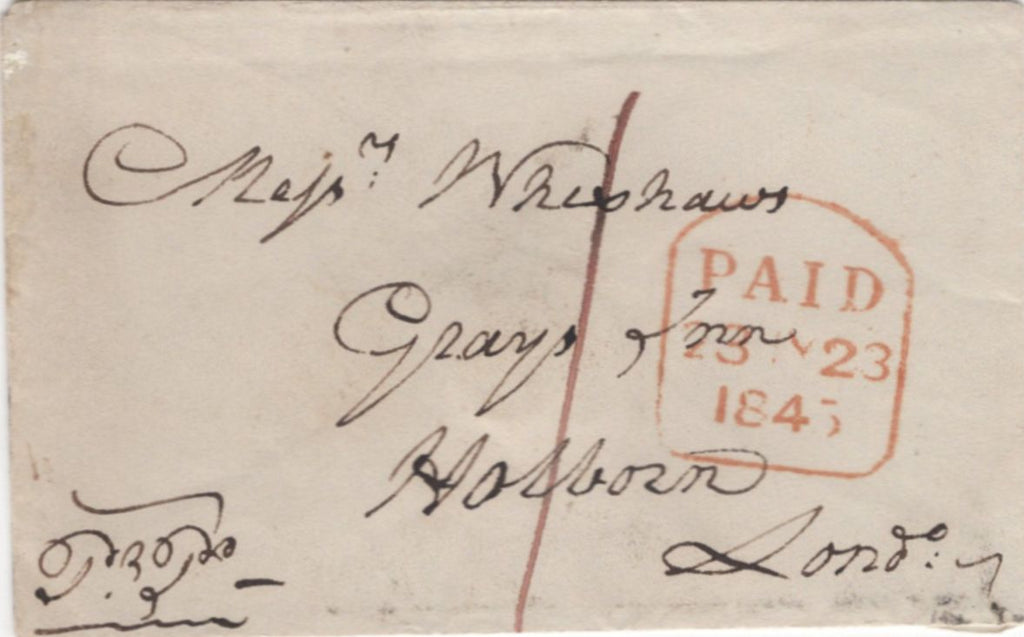 Messrs: Whishaws
Grays Inn
Holborn
Londo:
PAID
23 23
1845